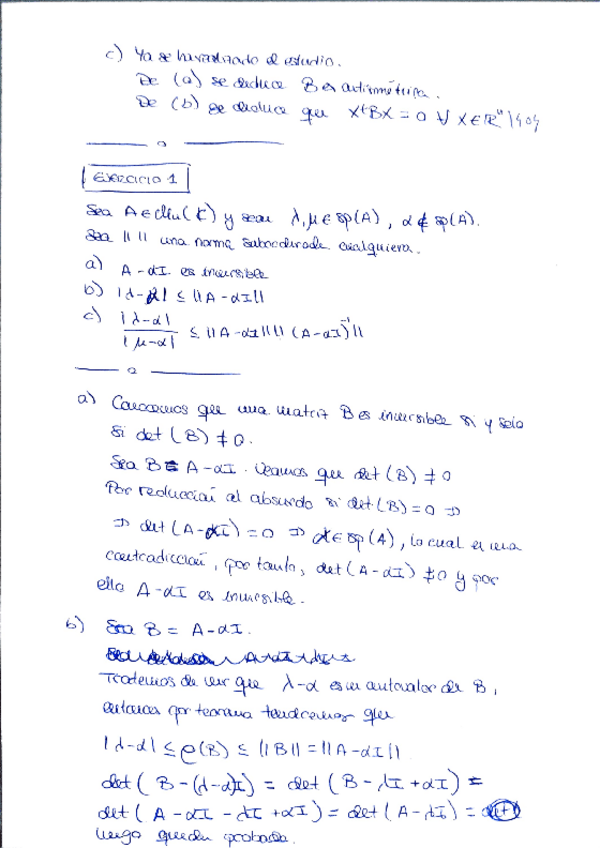 c) Ya se ha realizado el estudio.
De (a) se deduce B es antisimétrica.
De (b) se deduce que XᵗBX = 0 ∀ X ∈ ℝⁿ \ {0}
Ejercicio 1
Sea A ∈ Mn(ℂ) y sean λ, μ ∈ sp(A), α ∉ sp(A).
Sea || || una norma subordinada cualquiera.
a) A - αI es inversible
b) |λ-α| ≤ ||A-αI||
c) |λ-α| / |μ-α| ≤ ||A-αI|| || (A-αI)⁻¹||
a) Conocemos que una matriz B es inversible si y solo
si det(B) ≠ 0.
Sea B = A-αI. Veamos que det(B) ≠ 0
Por reducción al absurdo si det(B) = 0 ⇒
⇒ det(A-αI) = 0 ⇒ α ∈ sp(A), lo cual es una
contradicción, por tanto, det(A-αI) ≠ 0 y por
ello A-αI es inversible.
b) Sea B = A-αI.
Tratemos de ver que λ-α es un autovalor de B,
entonces por teorema tendremos que
|λ-α| ≤ ρ(B) ≤ ||B|| = ||A-αI||
det(B-(λ-α)I) = det(B-λI+αI) =
det(A-αI-λI+αI) = det(A-λI) =
luego queda probada.